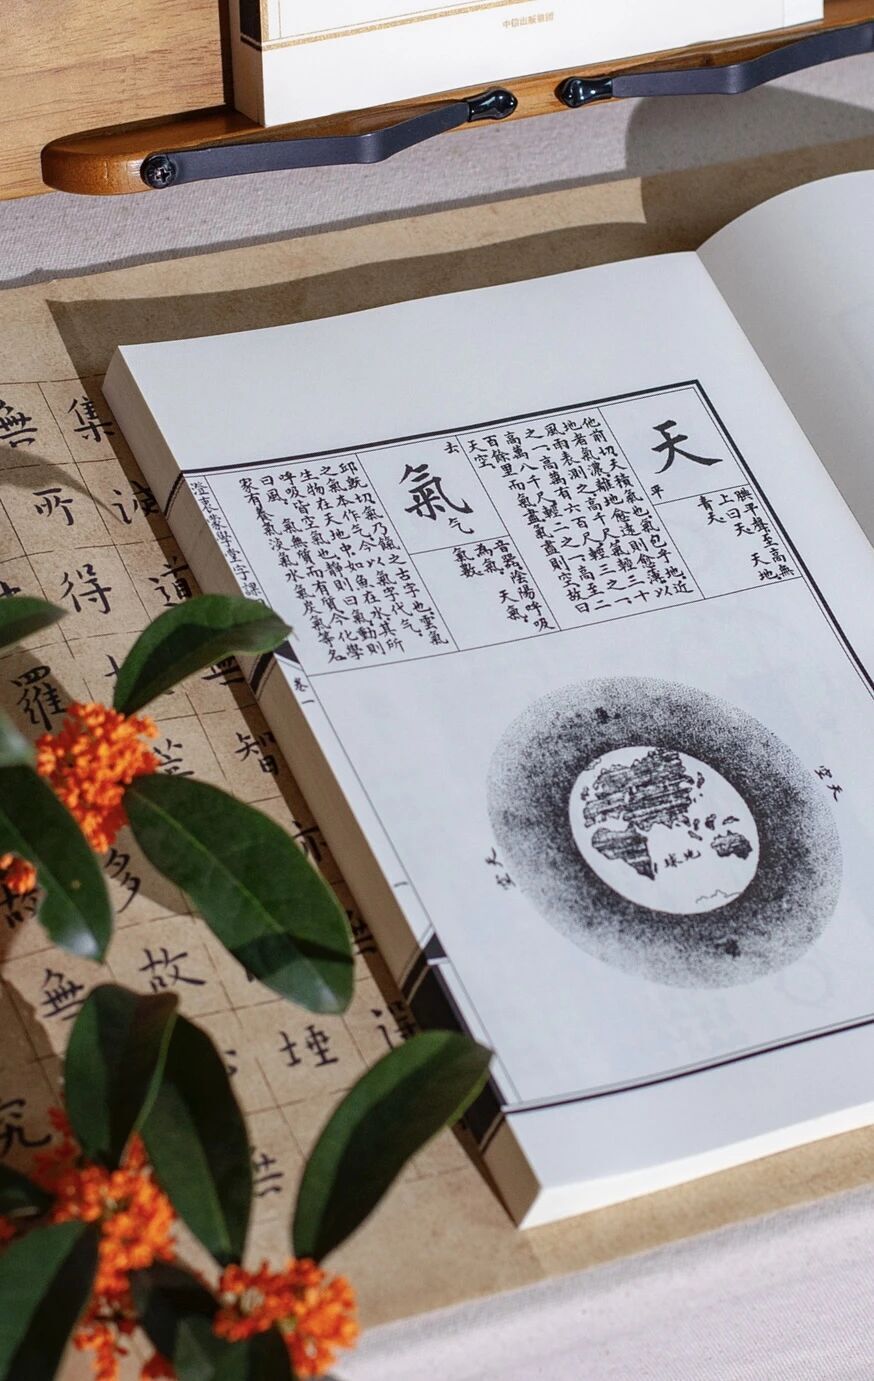 中信出版集团
天
平
腆平聲至高無
上曰天 天地
青天
他前切天積氣也氣包乎地近
地者氣濃離地愈遠則愈薄以
風雨表測之高千尺氣輕三十
之一高萬有六百尺輕三之一
高萬八千尺輕二之一高至二
百餘里而氣盡氣盡則空故曰
天空
去
氣气
音器陰陽呼吸
為氣 天氣
氣數
邱既切氣乃餼之古字也雲氣
之氣本作气今以氣字代气
生物在天地中如魚在水其所
呼吸皆空氣也靜則曰氣動則
曰風 氣無質而有質今化學
家有養氣淡氣水氣炭氣等名
澄衷蒙學堂字課
卷一
一
天空
天空
地球
集
無
所
得
道
羅
智
多
故
無
究